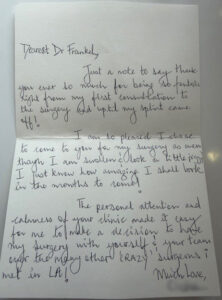 Dearest Dr Frankel,
Just a note to say thank
you ever so much for being so fantastic
right from my first consultation to
the surgery and until my splint came
off!
I am so pleased I chose
to come to you for my surgery as even
though I am swollen & look a little
I just know how amazing I shall look
in the months to come!
The personal attention and
calmness of your clinic made it easy
for me to make a decision to have
my surgery with yourself & your team
over the many other 'CRAZY' surgeons i
met in LA!
Much Love,